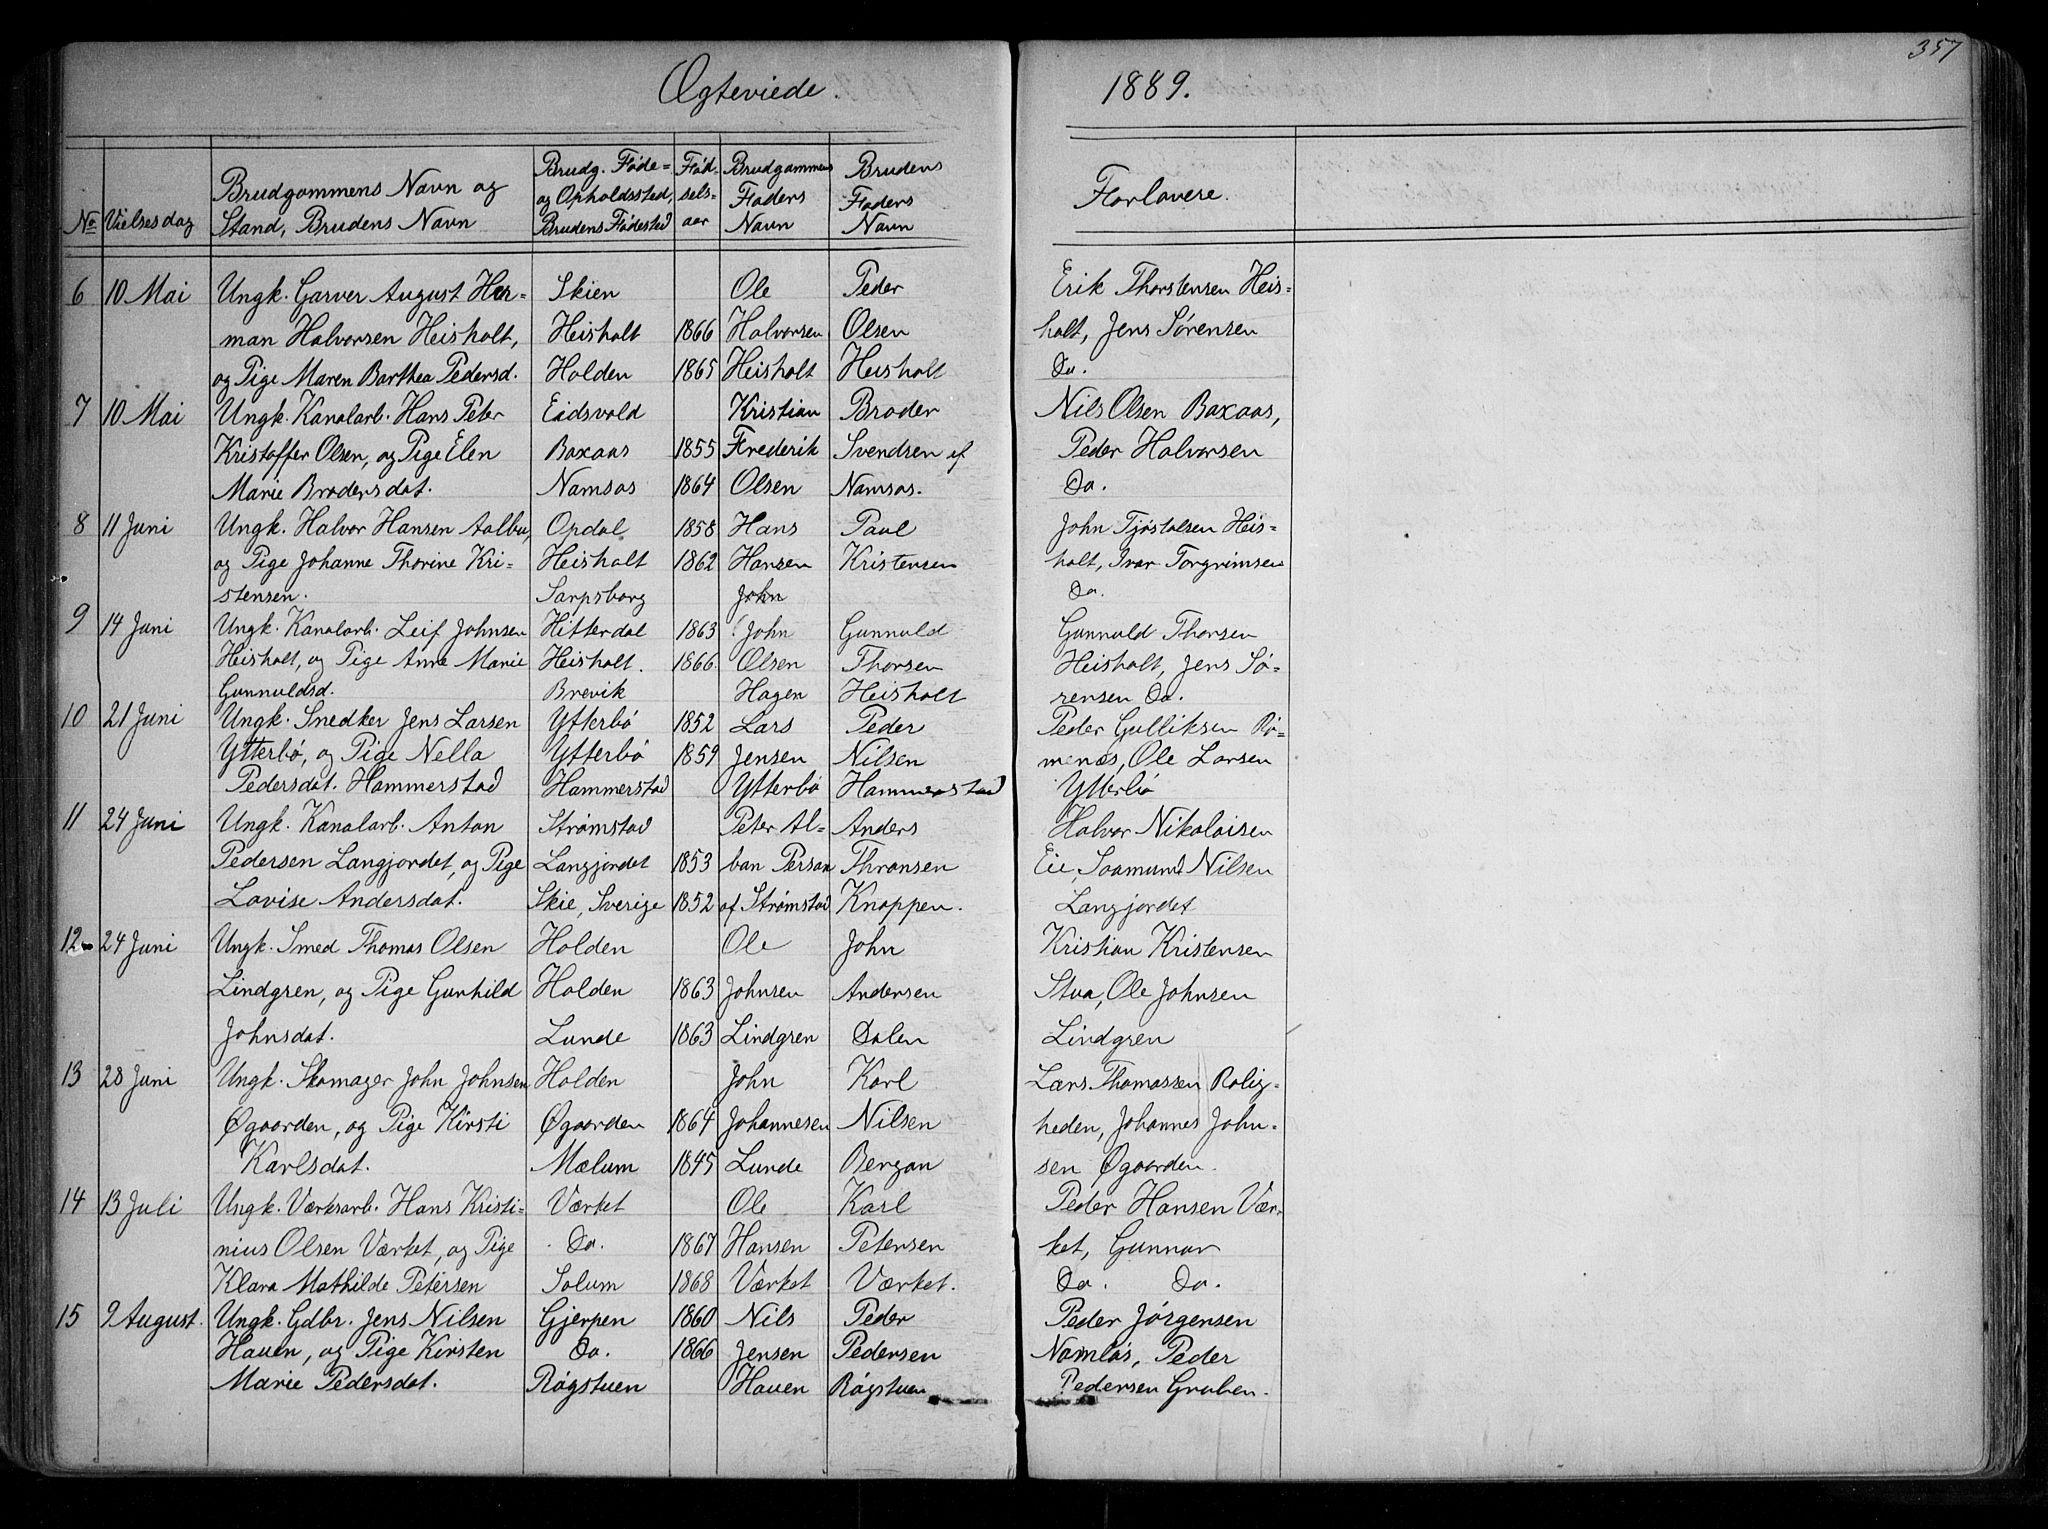 357
Ægteviede. 1889.
No Vielsesdag Brudgommens Navn og Stand, Brudens Navn Brudg. Føde= og Opholdssted, Brudens Fødested Fød- sels- aar Brudgommens Faders Navn Brudens Faders Navn Forlovere.
6 10 Mai Ungk. Garver August Her= Skien Ole Peder Erik Thorstensen Heis=
man Halvorsen Heisholt, Heisholt 1866 Halvorsen Olsen holt, Jens Sørensen
og Pige Maren Barthea Pedersd. Holden 1865 Heisholt Heisholt Do.
7 10 Mai Ungk. Kanalarb. Hans Peter Eidsvold Kristian Broder Nils Olsen Baxaas,
Kristoffer Olsen, og Pige Elen Baxaas 1855 Frederik Svendsen af Peder Halvorsen
Marie Brodersdat. Namsos 1864 Olsen Namsos. Do.
8 11 Juni Ungk. Halvor Hansen Aalbu, Opdal 1858 Hans Paul John Tjøstolsen Heis=
og Pige Johanne Thorine Kri- Heisholt 1862 Hansen Kristensen holt, Ivar Torgrimsen
stensen. Sarpsborg John Do.
9 14 Juni Ungk. Kanalarb. Leif Johnsen Hitterdal 1863 John Gunnuld Gunnuld Thorsen
Heisholt, og Pige Anne Marie Heisholt. 1866. Olsen Thorsen Heisholt, Jens Sø-
Gunnuldsd. Brevik Hagen Heisholt rensen Do.
10 21 Juni Ungk. Snedker Jens Larsen Ytterbø 1852 Lars Peder Peder Gulliksen Rø-
Ytterbø, og Pige Nella Ytterbø 1859 Jensen Nilsen menæs, Ole Larsen
Pedersdat. Hammerstad Hammerstad Ytterbø Hammerstad Ytterbø
11 24 Juni Ungk. Kanalarb. Anton Strømstad Peter Al- Anders Halvor Nikolaisen
Pedersen Langjordet, og Pige Langjordet 1853 ban Persan Thransen Eie, Saamund Nilsen
Lovise Andersdat. Skie, Sverige 1852 af Strømstad Knappen. Langjordet
12 24 Juni Ungk. Smed Thomas Olsen Holden Ole John Kristian Kristensen
Lindgren, og Pige Gunhild Holden 1863 Johnsen Andersen Stva, Ole Johnsen
Johnsdat. Lunde 1863 Lindgren Dalen Lindgren
13 28 Juni Ungk. Skomager John Johnsen Holden John Karl Lars Thomassen Rolig-
Øgaarden, og Pige Kirsti Øgaarden 1864 Johannesen Nilsen heden, Johannes John-
Karlsdat. Mælum 1845 Lunde Bergan sen Øgaarden.
14 13 Juli Ungk. Værksarb. Hans Kristi= Værket Ole Karl Peder Hansen Vær-
nius Olsen Værket, og Pige Do. 1867 Hansen Petersen ket, Gunnar
Klara Mathilde Petersen Solum 1868 Værket Værket. Do. Do.
15 9 August. Ungk. Gdbr. Jens Nilsen Gjerpen 1860 Nils Peder Peder Jørgensen
Hauen, og Pige Kirsten Do. 1866 Jensen Pedersen Namløs, Peder
Marie Pedersdat. Røgstuen Hauen Røgstuen Pedersen Gruben.